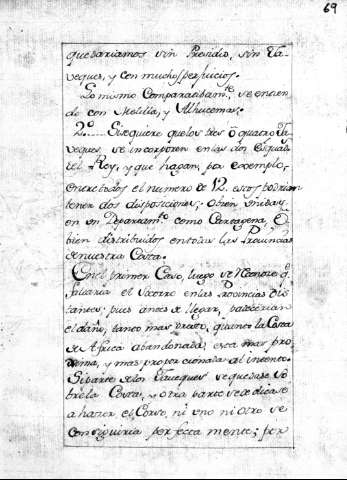 69
quedariamos sin Presidio, sin Xa-
veques, y con muchos perjuicios.
Lo mismo Comparatibam.te se entien
de con Melilla, y Alhucemas.
2.o Si se quiere que los tres ô quatro Xa-
veques, se incorporen en las dos Esquad.s
del Rey, y que hagan, por exemplo,
entre todos el numero de 12. estos podrian
tener dos disposiciones: ô bien unidas
en un Departam.to como Cartagena, ô
bien distribuidos en todas las Provincias
de nuestra Costa.
En el primer Caso, luego se
el Socorro en las Provincias dis
tantes; pues antes de llegar, padecerian
el daño, tanto mas presto, quanto la Costa
de Africa abandonada, esta mas pro-
xima, y mas proporcionada al intento.
Si parte de los Xaveques se quedase so
bre la Costa, y otra parte se dedicase
a hacer el Corso, ni uno ni otro se
conseguiria perfectamente; por